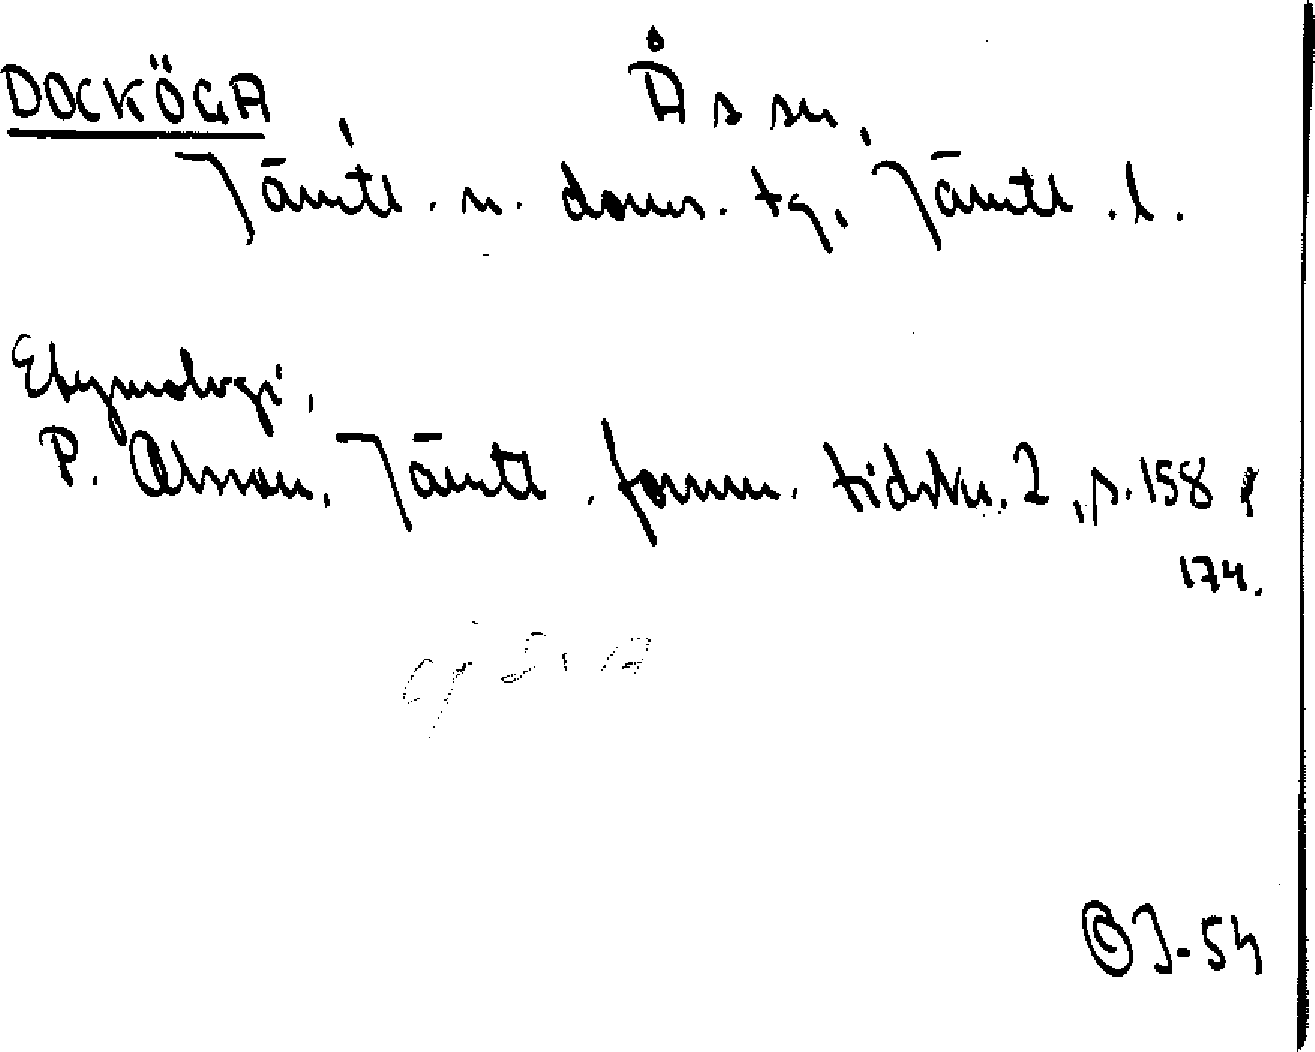 DOCKÖGA Ås sn,
Jämtl. n. doms. tg, Jämtl. l.
Etymologi,
P. Olsson, Jämtl. fornm. tidskr. 2, s. 158 &
174.
J-54